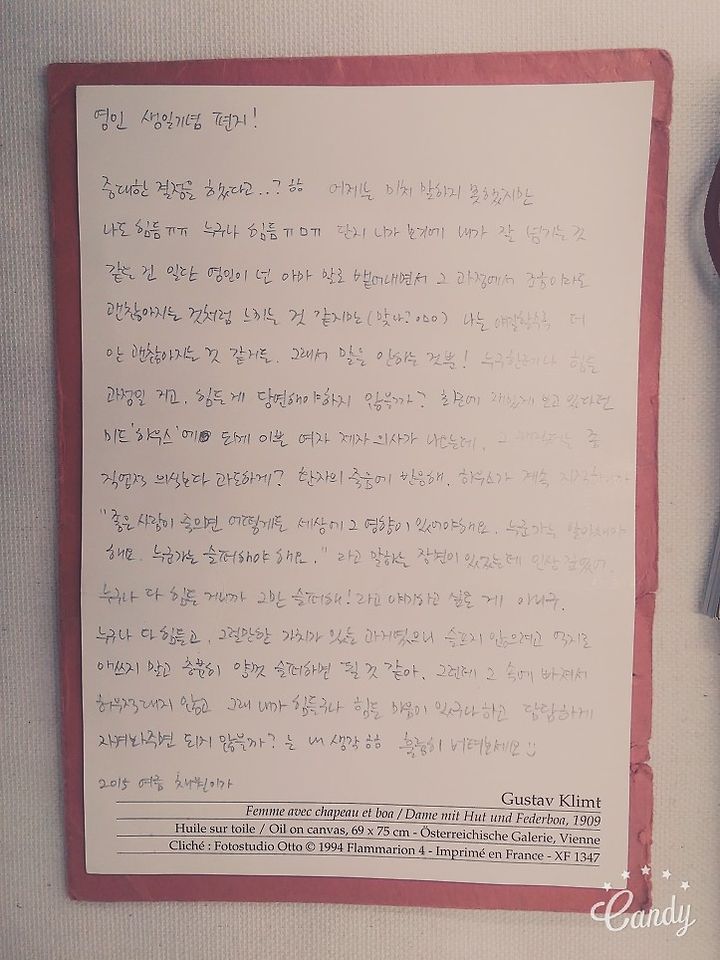 영인 생일기념 편지!
중대한 결정을 했다고..? ㅎㅎ 어제는 미처 말하지 못했지만
나도 힘듦ㅠㅠ 누구나 힘듦ㅠㅁㅠ 단지 니가 보기에 내가 잘 넘기는 것
같는 건 일단 영인이 넌 아마 말로 뱉어내면서 그 과정에서 조금이라도
괜찮아지는 것처럼 느끼는 것 같지만 (맞나?ㅇㅁㅇ) 나는 얘길할수록 더
안 괜찮아지는 것 같거든. 그래서 말을 안하는 것뿐! 누구한테나 힘든
과정일 거고, 힘든게 당연해야하지 않을까? 최근에 재밌게 보고 있다던
미드 '하우스'에 되게 이쁜 여자 제자 의사가 나오는데, 그 좀
직업적 의식보다 과도하게? 환자의 죽음에 반응해. 하우스가 계속
"좋은 사람이 죽으면 어떻게든 세상에 그 영향이 있어야해요. 누군가는 알아채야
해요. 누군가는 슬퍼해야 해요." 라고 말하는 장면이 있었는데 인상 깊었어.
누구나 다 힘든 거니까 그만 슬퍼해! 라고 얘기하고 싶은 게 아니구,
누구나 다 힘들고, 그럴만한 가치가 있는 과거였으니 슬프지 않으려고 억지로
애쓰지 말고 충분히 양껏 슬퍼하면 될 것 같아. 그런데 그 속에 빠져서
허우적대지 않고 그래 내가 힘들구나 힘든 마음이 있구나하고 담담하게
지켜봐주면 되지 않을까? 는 내 생각 ㅎㅎ 훌륭히 버텨보세요 :)
2015 여름 채원이가
Gustav Klimt
Femme avec chapeau et boa / Dame mit Hut und Federboa, 1909
Huile sur toile / Oil on canvas, 69 x 75 cm - Österreichische Galerie, Vienne
Cliché : Fotostudio Otto © 1994 Flammarion 4 - Imprimé en France - XF 1347
Candy